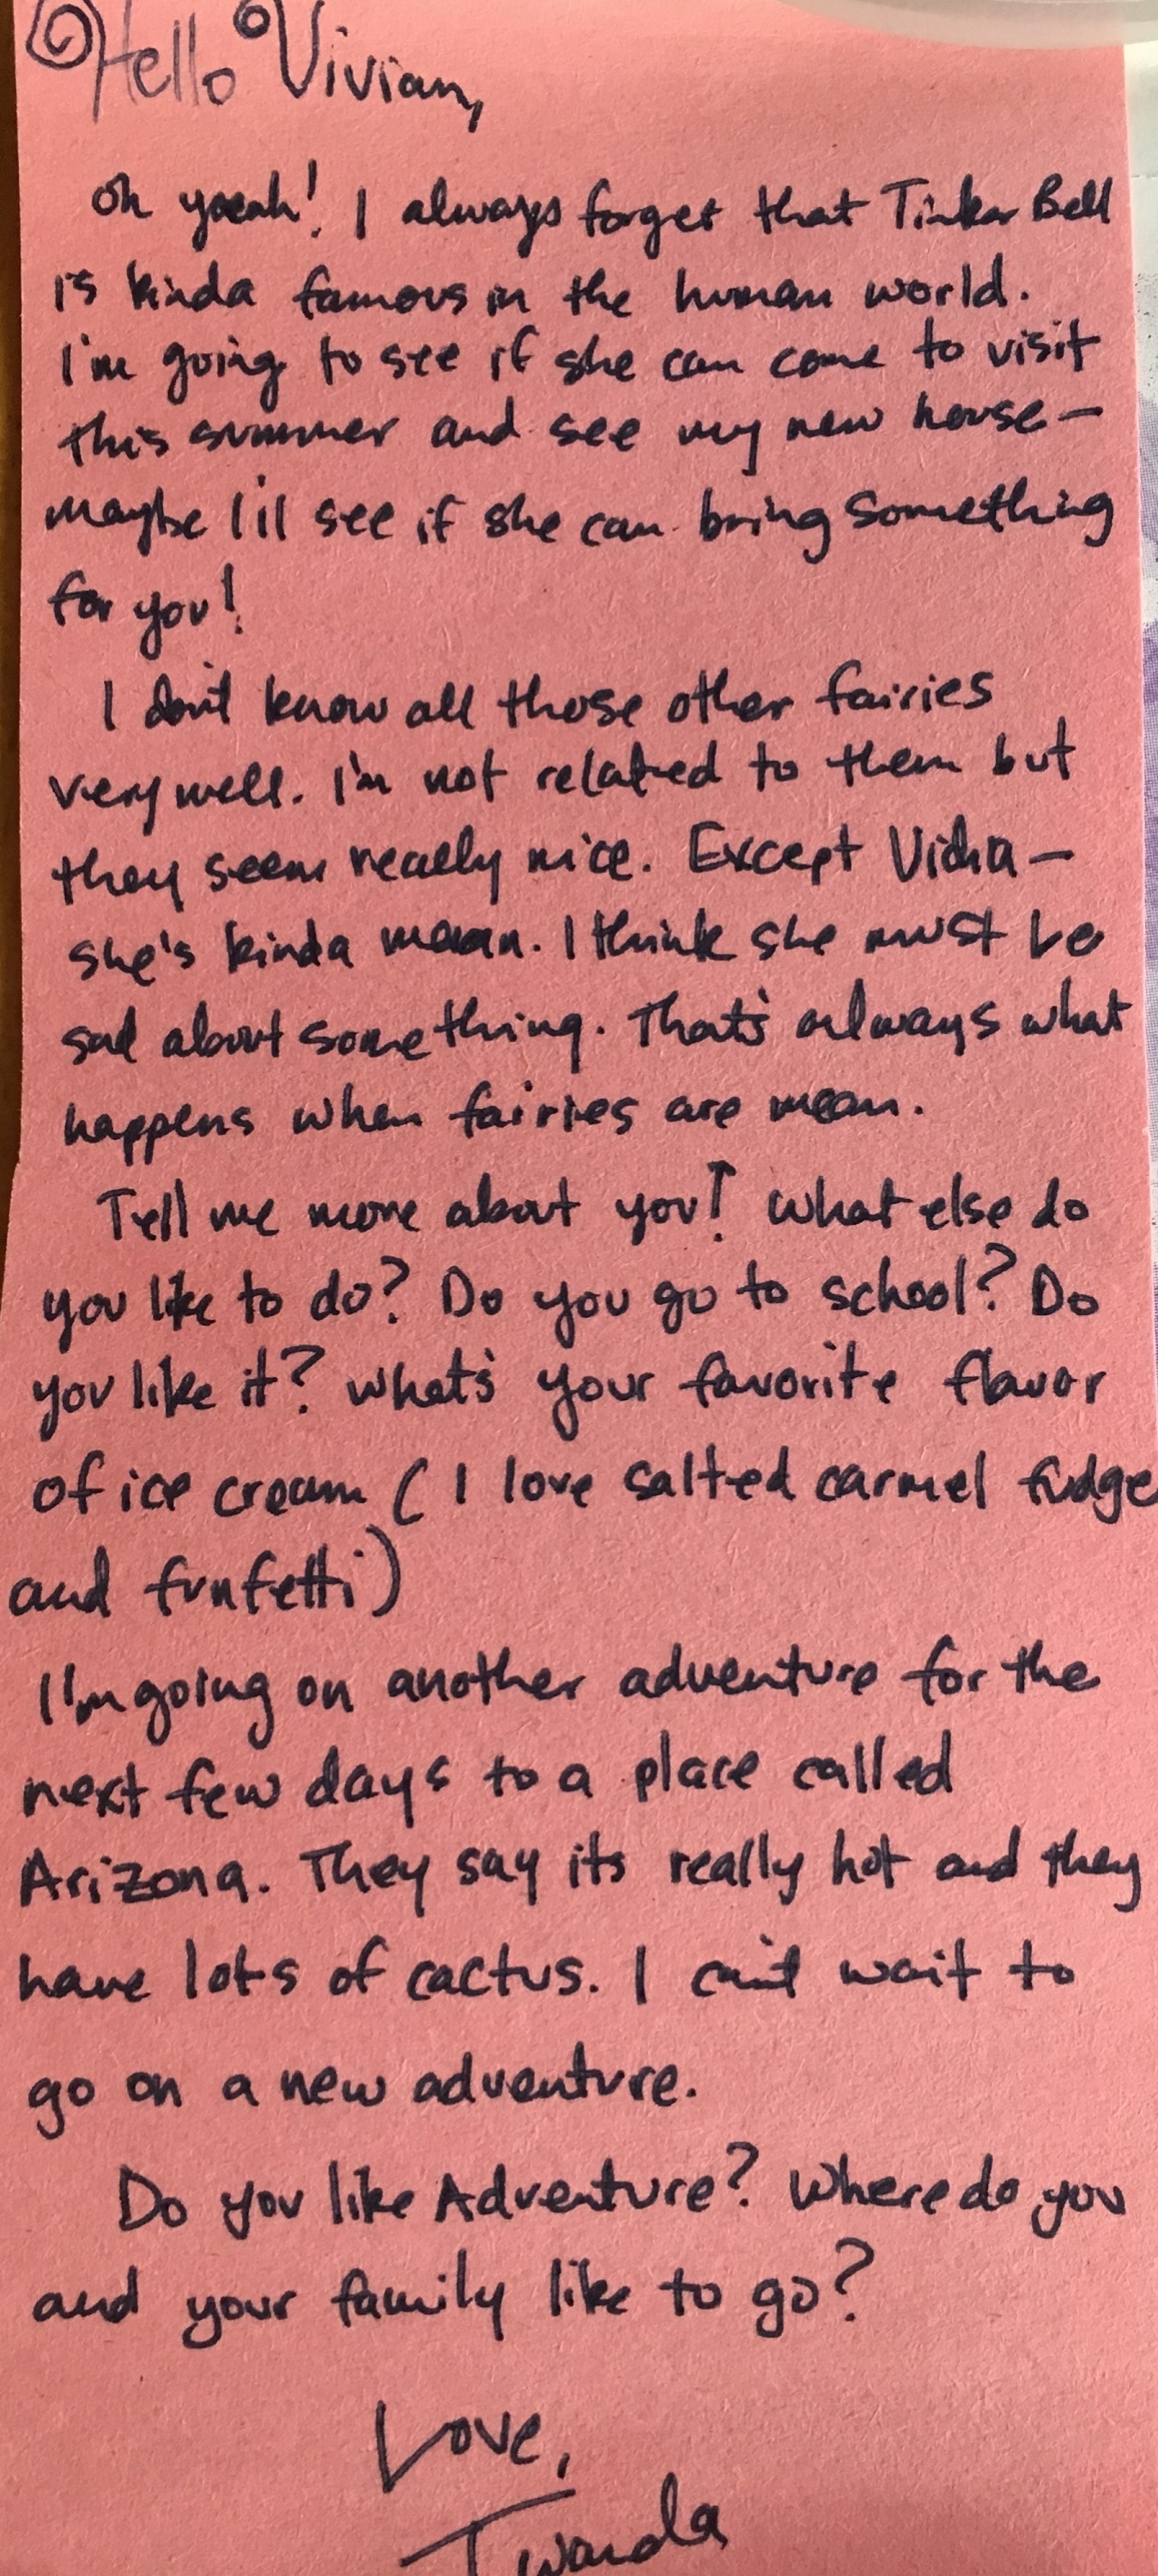 Hello Vivian,
Oh yeah! I always forget that Tinker Bell
is kinda famous in the human world.
I'm going to see if she can come to visit
this summer and see my new house—
maybe I'll see if she can bring something
for you!
I don't know all those other fairies
very well. I'm not related to them but
they seem really nice. Except Vidia—
she's kinda mean. I think she must be
sad about something. That's always what
happens when fairies are mean.
Tell me more about you! What else do
you like to do? Do you go to school? Do
you like it? What's your favorite flavor
of ice cream (I love salted carmel fudge
and funfetti)
I'm going on another adventure for the
next few days to a place called
Arizona. They say its really hot and they
have lots of cactus. I can't wait to
go on a new adventure.
Do you like Adventure? Where do you
and your family like to go?
Love,
Twanda